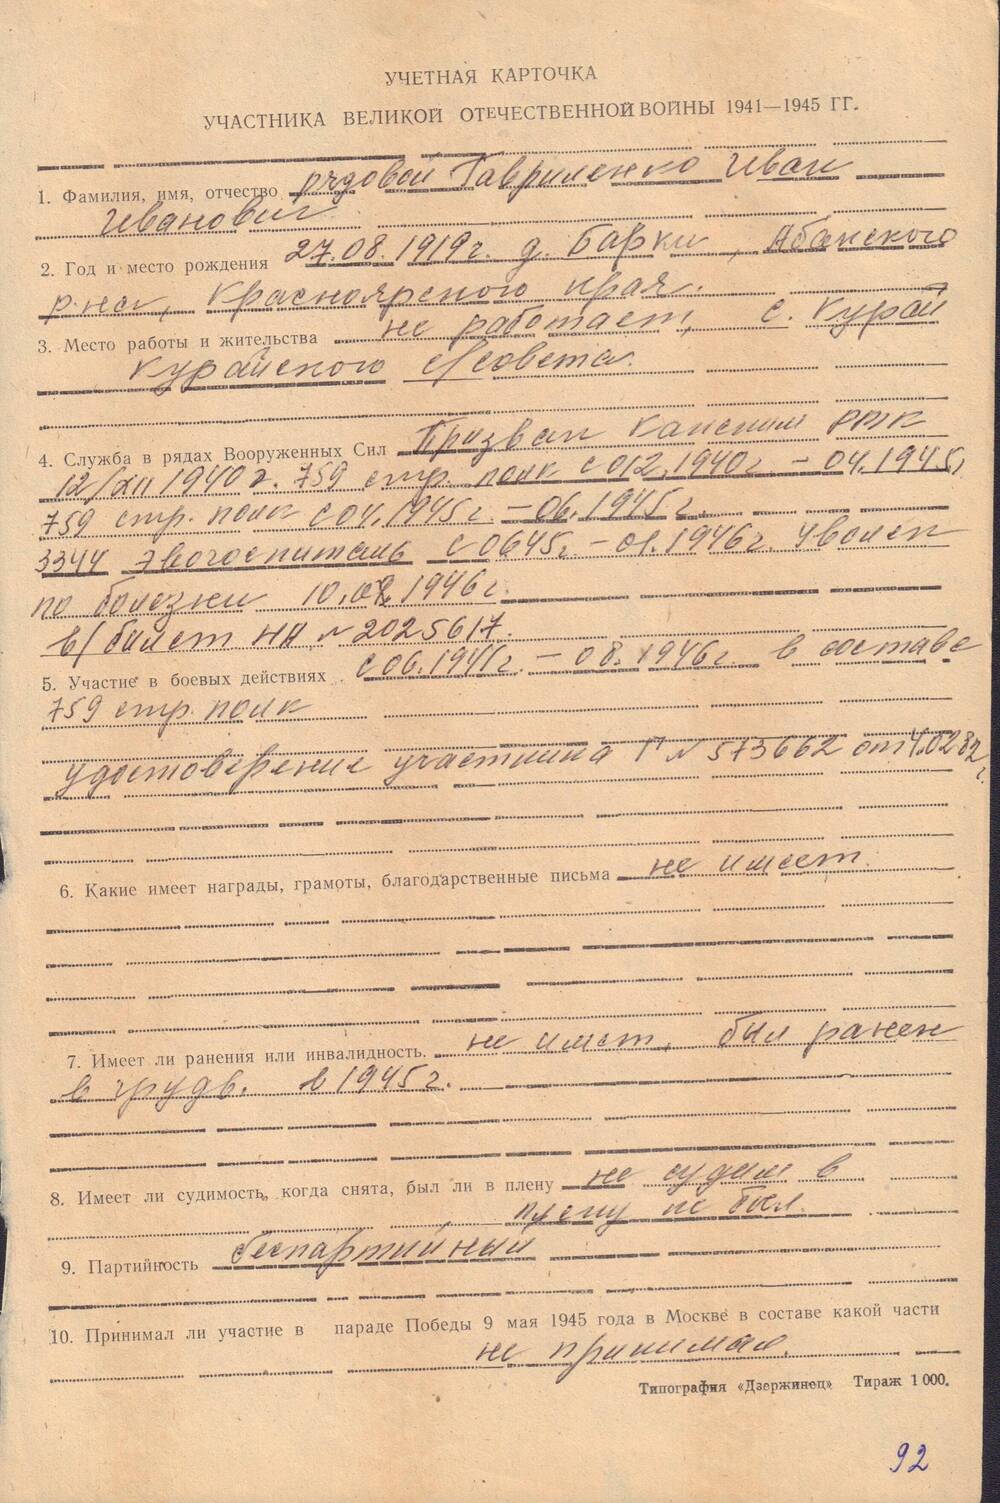 УЧЕТНАЯ КАРТОЧКА
УЧАСТНИКА ВЕЛИКОЙ ОТЕЧЕСТВЕННОЙ ВОЙНЫ 1941—1945 ГГ.
1. Фамилия, имя, отчество рядовой Гавриленко Иван
Иванович
2. Год и место рождения 27.08.1919г. д. Барки, Абанского
р-на, Красноярского края.
3. Место работы и жительства не работает, с. Курай
Курайского с/совета.
4. Служба в рядах Вооруженных Сил Призван Канским РТК
12/XII 1940г. 759 стр. полк с 012.1940г. – 04.1945,
759 стр. полк с 04.1945г. – 06.1945г.
3344 эвогоспиталь с 0645г. – 01.1946г. Уволен
по болезни 1946г.
в/билет НН № 2025617.
5. Участие в боевых действиях с 06.1941г. – 08.1946г. в составе
759 стр. полк
удостоверение участника Г № 573662 от 4.02 82
г.
6. Какие имеет награды, грамоты, благодарственные письма не имеет.
7. Имеет ли ранения или инвалидность. не имет, был ранен
в грудь. в 1945г.
8. Имеет ли судимость, когда снята, был ли в плену не судим в
плену не был.
9. Партийность беспартийный
10. Принимал ли участие в параде Победы 9 мая 1945 года в Москве в составе какой части
не принимал.
Типография «Дзержинец» Тираж 1 000.
92